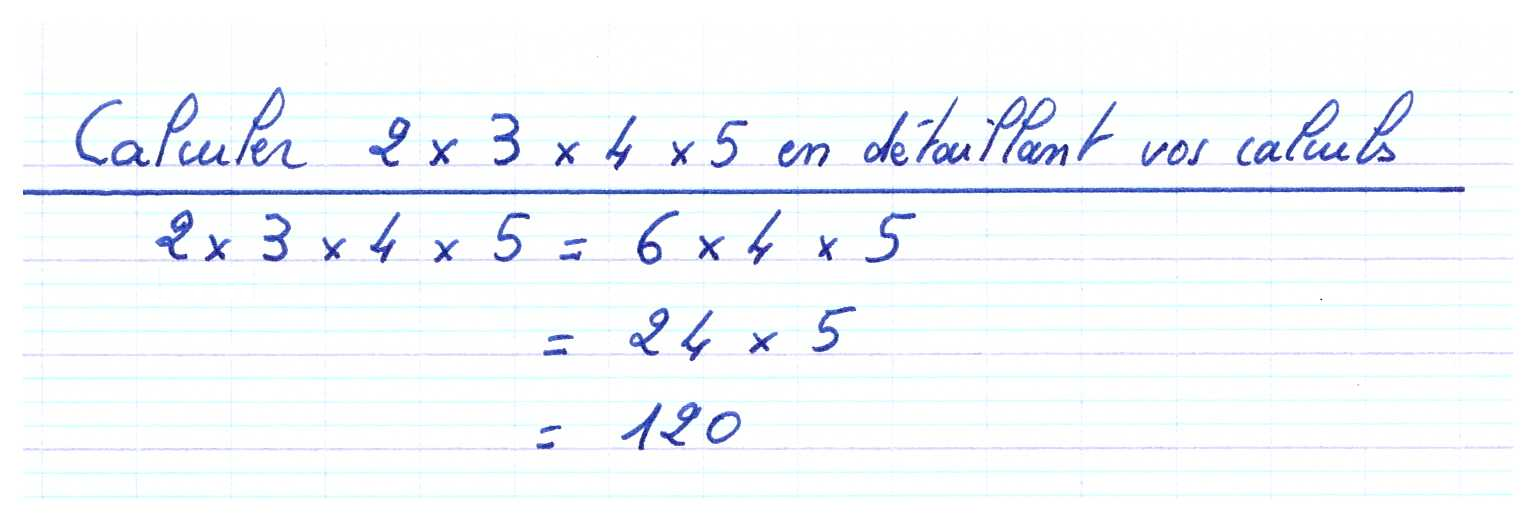 Calculer 2 × 3 × 4 × 5 en détaillant vos calculs
2 × 3 × 4 × 5 = 6 × 4 × 5
= 24 × 5
= 120